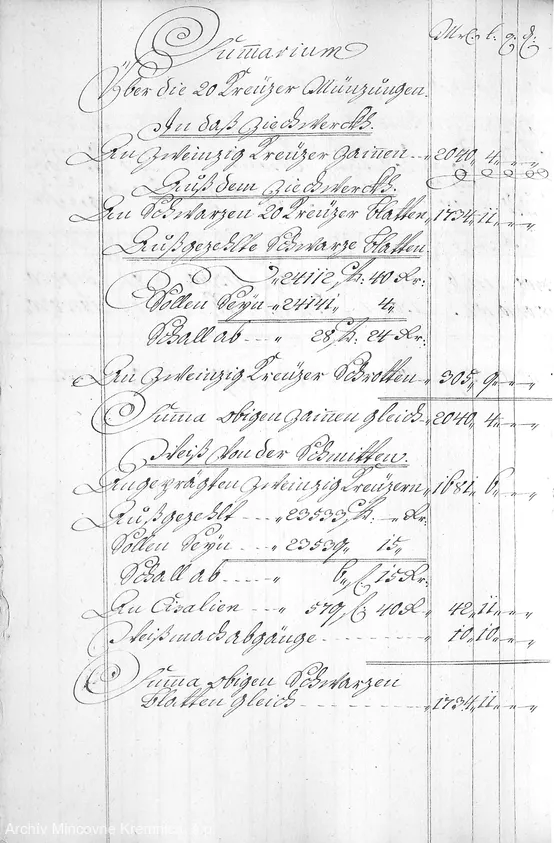 Summarium
M: l: q: d:
Über die 20 Kreüzer Münzungen.
In daß Zieckwerckh.
An Zweinzig Kreüzer Zainnen „ 2040„ 4„ – „ – „
Auß dem Zieckwerckh.
An Schwarzen 20 Kreüzer Blatten „ 1734„ 11„ – „ – „
Außgezehlte Schwarze Blatten
„ 24112 f: 40 Kr:
Sollen Seyn „ 24141„ 4„
Schall ab „ 28 f: 24 Kr:
An Zweinzig Kreüzer Schrotten „ 305„ 9„ – „ – „
Summa obigen Zainnen gleich „ 2040„ 4„ – „ – „
Weiß von der Schmitten.
An geprägten Zweinzig Kreüzern „ 1681„ 6„ – „ – „
Außgezehlt „ 23533 f: – Kr:
Sollen Seyn „ 23539„ 15„
Schall ab „ 6„ f: 15 Kr:
An Cisalien „ 579 f: 40 Kr 42„ 11„ – „ – „
Weißmachabgänge „ 10„ 10„ – „ – „
Summa obigen Schwarzen
Blatten gleich „ 1734„ 11„ – „ – „
Archív Mincovne Kremnica